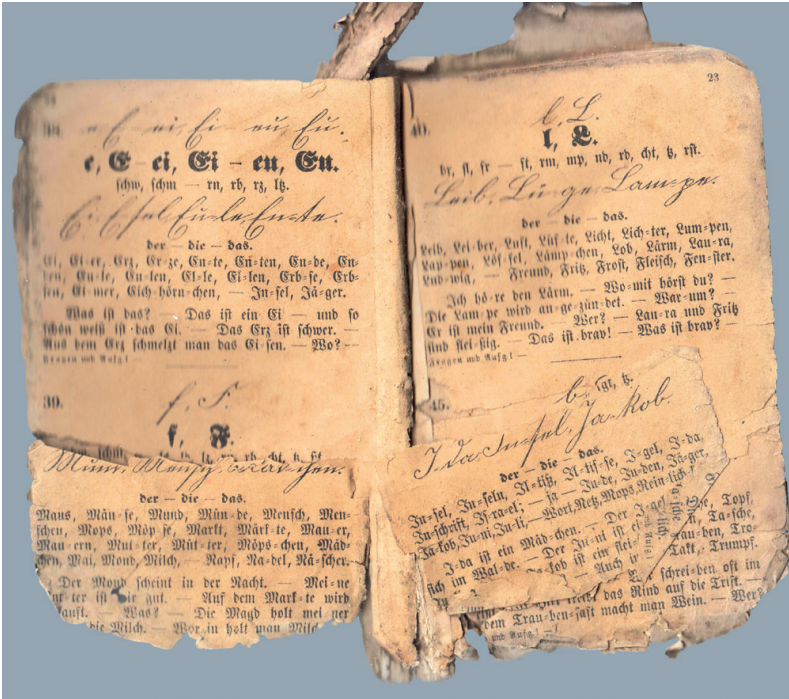 e, E ei, Ei — eu, Eu.
e, E — ei, Ei — eu, Eu.
schw, schm — rn, rb, rz, ltz.
Ei, Esel, Eu-le, En-te.
der — die — das.
Ei, Ei-er, Erz, Er-ze, En-te, En-ten, En-de, En-
den, Eu-le, Eu-len, El-le, El-len, Erb-se, Erb-
sen, Ei-mer, Eich-hörn-chen, — In-sel, Jä-ger.
Was ist das? — Das ist ein Ei — und so
schön weiß ist das Ei. — Das Erz ist schwer. —
Aus dem Erz schmelzt man das Ei-sen. — Wo? —
Fragen und Aufg! —
39.
f, F.
f, F.
Mund. Mensch.
der — die — das.
Maus, Mäu-se, Mund, Mün-de, Mensch, Men-
schen, Mops, Möp-se, Markt, Märk-te, Mau-er,
Mau-ern, Mut-ter, Müt-ter, Möps-chen, Mäd-
chen, Mai, Mond, Milch, — Napf, Na-del, Nä-scher.
Der Mond scheint in der Nacht. — Mei-ne
ist dir gut. — Auf dem Mark-te wird
— Was? — Die Magd holt mei-ner
die Milch. — Wor-in holt man Milch
23
40.
l, L.
l, L.
br, fl, fr — ft, rm, mp, nd, rd, cht, tz, rst.
Leib. Lu-ge. Lam-pe.
der — die — das.
Leib, Lei-ber, Luft, Lüf-te, Licht, Lich-ter, Lum-pen,
Lap-pen, Löf-fel, Lämp-chen, Lob, Lärm, Lau-ra,
Lud-wig, — Freund, Fritz, Frost, Fleisch, Fen-ster.
Ich hö-re den Lärm. — Wo-mit hörst du? —
Die Lam-pe wird an-ge-zün-det. — War-um? —
Er ist mein Freund. — Wer? — Lau-ra und Fritz
sind flei-ßig. — Das ist brav! — Was ist brav? —
Fragen und Aufg! —
45.
tz.
I-da, In-sel, Ja-kob.
der — die — das.
In-sel, In-seln, Il-tiß, Il-tis-se, I-gel, I-da,
In-schrift, Is-ra-el; — ja — Ju-de, Ju-den, Jä-ger,
Ja-kob, Ju-ni, Ju-li, — Wort, Netz, Mops, Rein-lich-
I-da ist ein Mäd-chen. — Der I-gel
sich im Wal-de. — Der Ju-ni ist
Ja-kob ist ein flei-
Auch
Topf,
Ta-sche,
Trau-ben, Tro-
Takt, Trumpf.
schrei-ben oft im
das Rind auf die Trift. —
dem Trau-ben-saft macht man Wein. — Wer?
und Aufg! —